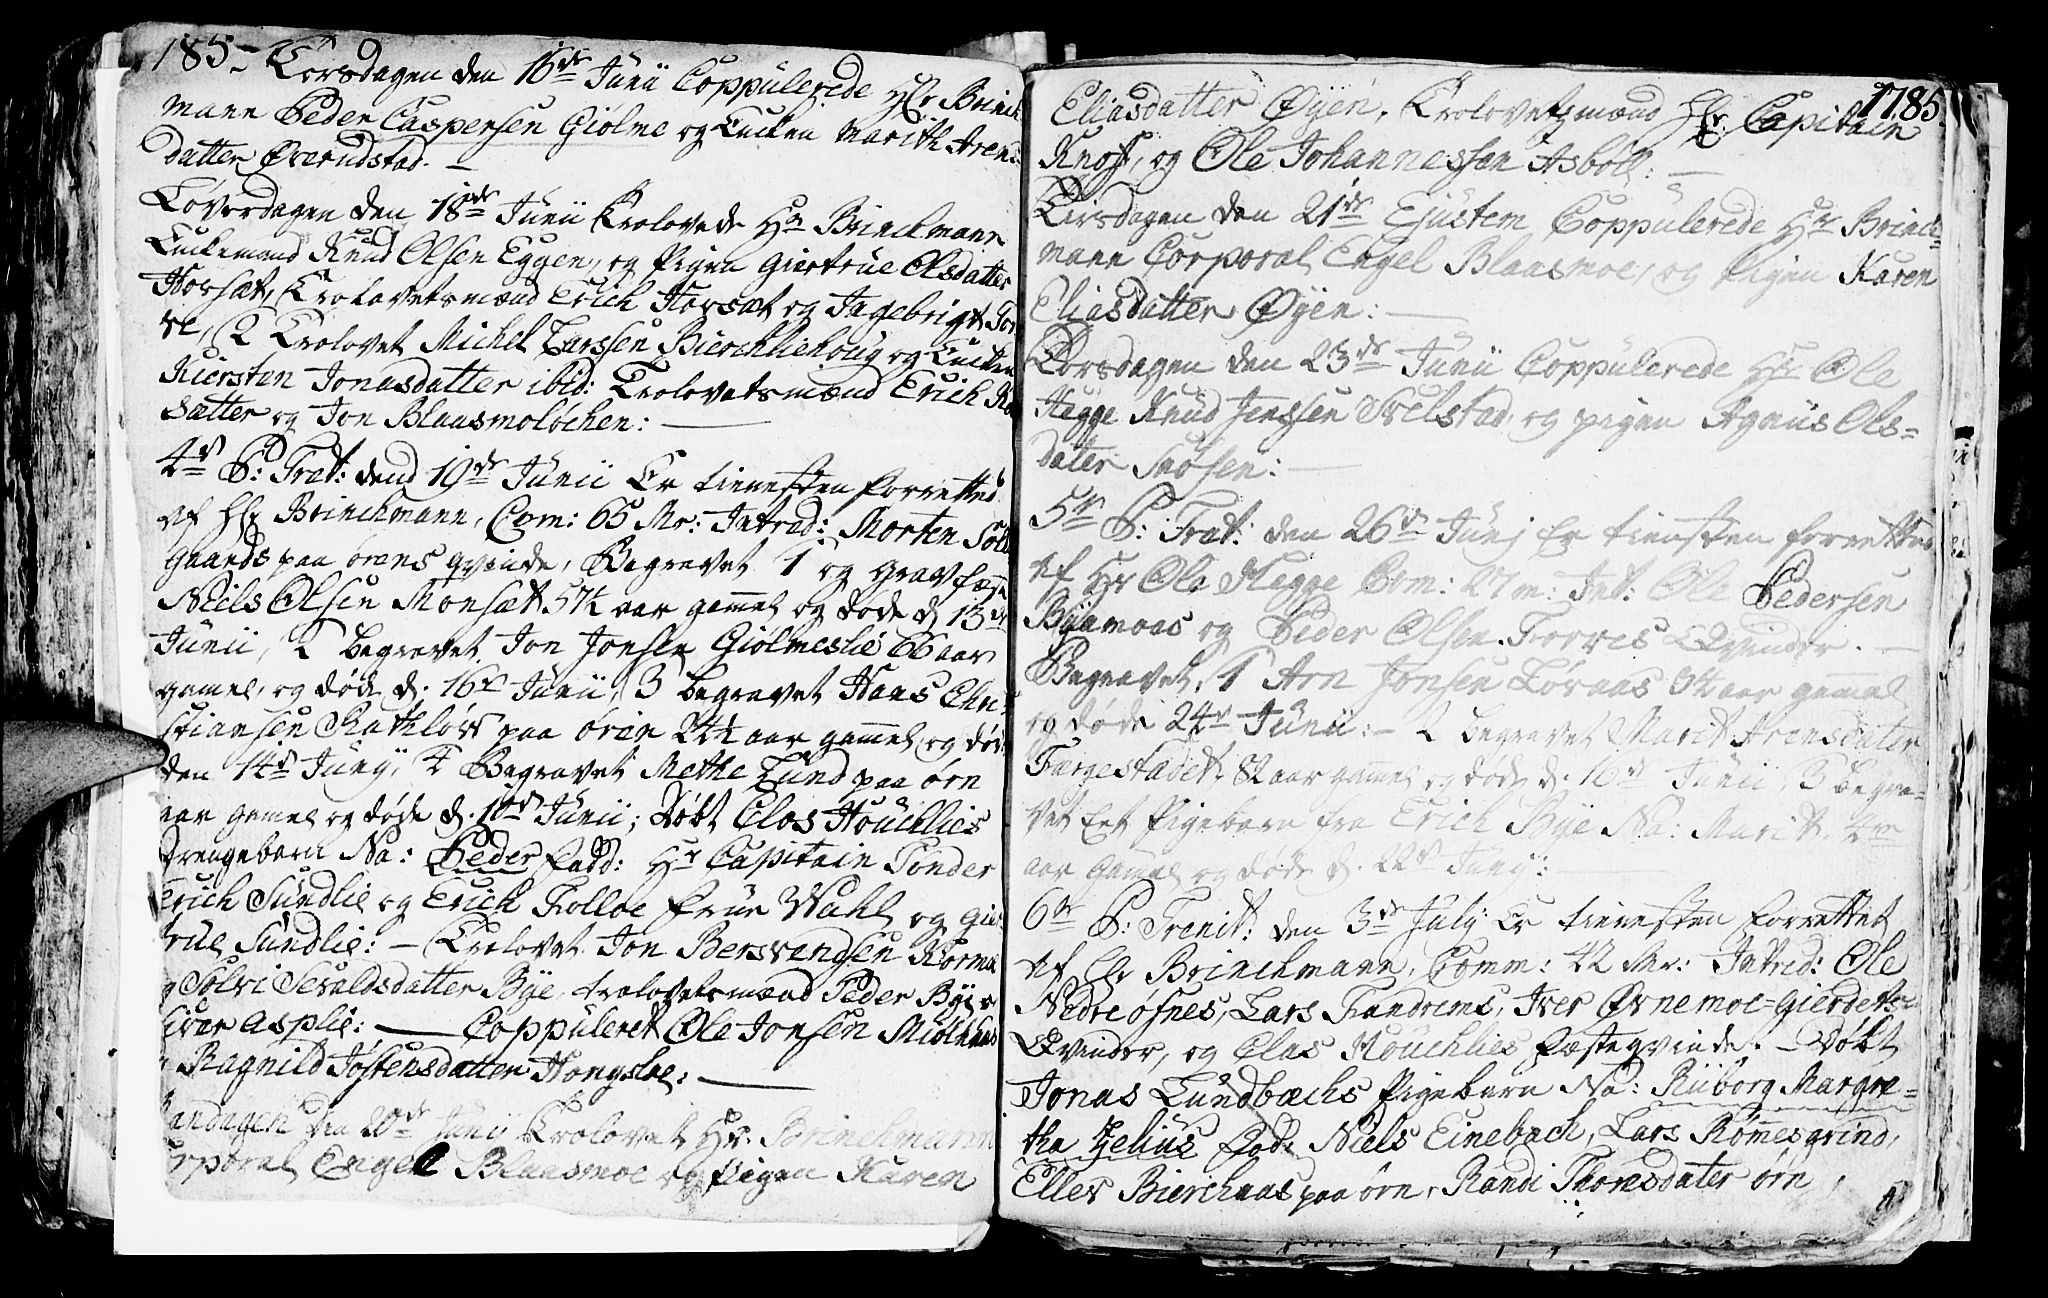 185 - Torsdagen den 16de Junii Coppulerede Hr Brinch
mann Peder Caspersen Giölme og Encken Marith Arens
datter Overudstad. -
Löverdagen den 18de Junii Trolovede Hr Brinckmann
Enckemand Knud Olsen Eggen, og Pigen Giertrue Olsdatter
Horsæt, Trolovetsmænd Erich Horsæt og Ingebrigt Tor
re, 2 Trolovet Michel Larssen Bierchliehoug og Encken
Kiersten Jonasdatter ibid: Trolovetsmænd Erich
sætter og Jon Blaasmolöchen: -
4de S: Trat: dend 19de Junii Er tienesten forrettet
af Hr Brinchmann, Com: 65 Mr: Introd: Morten
Gaards paa örens qvinde, Begravet 1 og gravfæst
Niels Olsen Monsæt 57½ aar gammel og döde d 13de
Junii, 2 begravet Jon Jonsen Giölmeslie 66 aar
gamel, og döde d: 16de Junii, 3 begravet Hans Chri
stiansen Rathlöw paa ören 24½ aar gammel og döde
den 14de Junij, 4 Begravet Methe Lund paa örn
aar gamel og döde d. Junii; Döbt Clas Houchlies
Drengebarn Na: Peder fadd: Hr Capitain Tonder
Erich Sundlie og Erich Folloe frue Wahl og Gier
true Sundlie: - Trolovet Jon Bersvendsen Kormoe
og Solvi Sevaldsdatter Bye, trolovetsmænd Peder Bye og
Siver Asplie: - Coppuleret Ole Jonsen Miölkhaas
Ragnild Jöstensdatter Hongsloe: -
Mandagen den 20de Junij Trolovet Hr: Brinchmann
Corporal Engel Blaasmoe og pigen Karen
1785
Eliasdatter Øyen, Trolovetsmænd Hr: Capitain
Knoff, og Ole Johannessen Asböll: -
Tirsdagen den 21de Ejustem Coppulerede Hr Brinch=
mann Corporal Engel Blaasmoe, og Pigen Karen
Eliasdatter Øyen: -
Torsdagen den 23de Junii Coppulerede Hr Ole
Hegge Knud Jenssen Svelstad, og pigen Agnus Ols=
dater Snösen: -
5te S: Trat: den 26de Junj Er tienesten forrettet
af Hr Ole Hegge Com: 27 m: Int: Ole Pedersen
Byamoas og Peder Olsen Torves Qvinder. -
Begravet, 1 Arn Jonsen Löraas aar gamel
og döde 24de Junii: - 2 begravet Marit Arensdater
Færgestadet 82 aar gammel og döde d: 16de Junii, 3 begra=
vet Eet Pigebarn fra Erich Bye Na: Marit
aar gamel og döde d. 22de Junij: -
6te S: Trenit: den 3de Julij Er tienesten forrettet
af Hr Brinchmann, Comm: 42 Mr: Introd: Ole
Nedreösnes, Lars Fandrems, Iver Ørnemoe=Gierdets
Qvinder, og Clas Houchlies fæsteqvinde. - Döbt
Jonas Lundbæchs Pigebarn Na: Ruborg Margre=
tha Helius fad: Niels Einebach, Lars Römmesgrind,
Ellev Bierchaas paa örn, Randi Thomsdater örn